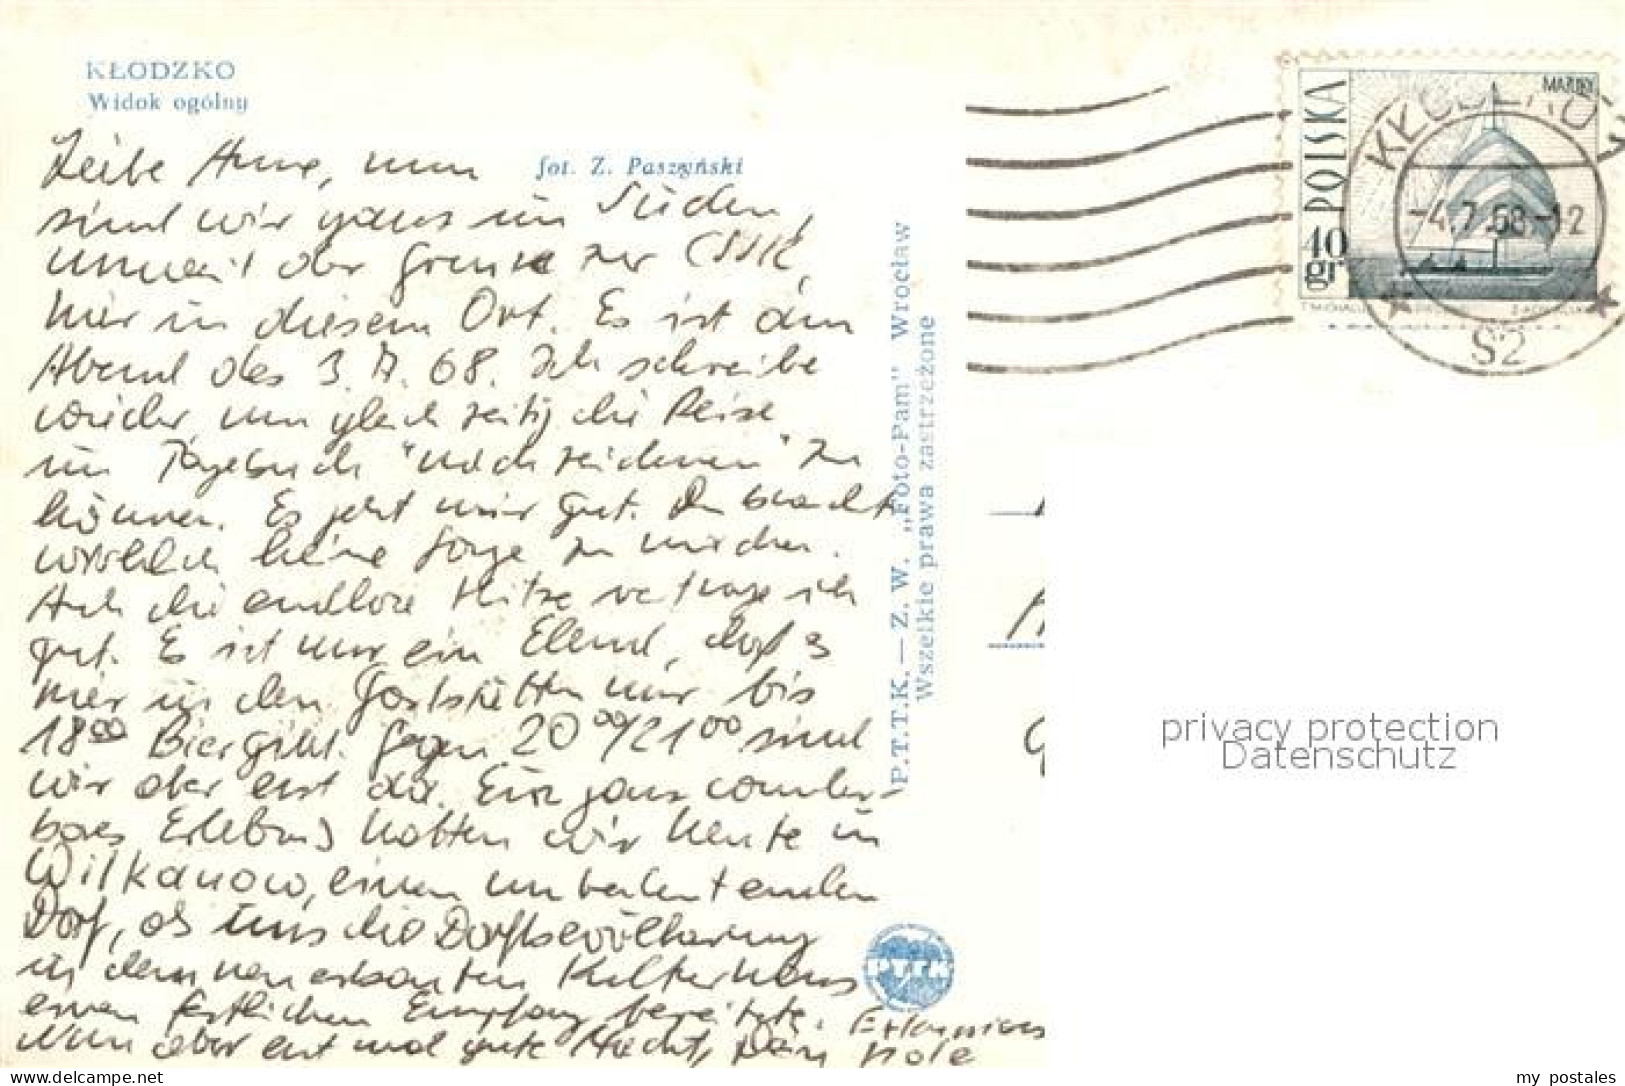 KŁODZKO
Widok ogólny
fot. Z. Paszyński
Leibe Anne, nun
sind wir ganz im Süden,
unweit der Grenze zur ČSSR,
hier in diesem Ort. Es ist am
Abend des 3.7.68. Ich schreibe
wieder, um gleichzeitig die Reise
im Tagebuch "nachzeichnen" zu
können. Es geht mir gut. Du brauchst
wirklich keine Sorge zu machen.
Auch die endlose Hitze vertrage ich
gut. Es ist nur ein Elend, daß es
hier in den Gaststätten nur bis
18⁰⁰ Bier gibt. Gegen 20⁰⁰/21⁰⁰ sind
wir aber erst da. Ein ganz wunder-
bares Erlebnis hatten wir heute in
Wilkanow, einem unbedeutenden
Dorf, als uns die Dorfbevölkerung
in dem neuerbauten Kulturhaus
einen festlichen Empfang bereitete.
Nun aber erst mal gute Nacht, Dein
P.T.T.K. — Z. W. „Foto-Pam" Wrocław
Wszelkie prawa zastrzeżone
PTTK
POLSKA
40 gr
KŁODZKO
-4.7.68-12
S2
privacy protection
Datenschutz
www.delcampe.net
my_postales